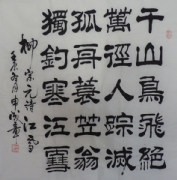 千山鳥飛絕
萬徑人踪滅
孤舟蓑笠翁
獨釣寒江雪
柳宗元詩江雪